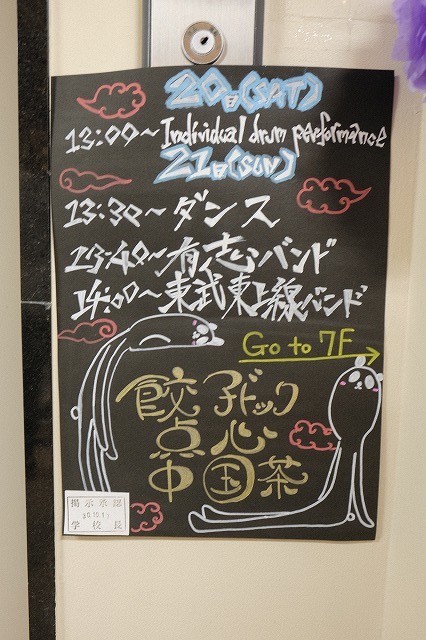 20日(SAT)
13:00~ Individual drum performance
21日(SUN)
13:30~ダンス
13:40~有志バンド
14:00~東武東上線バンド
Go to 7F
餃子ドック
点心
中国茶
掲示承認
30.10.1
学校長